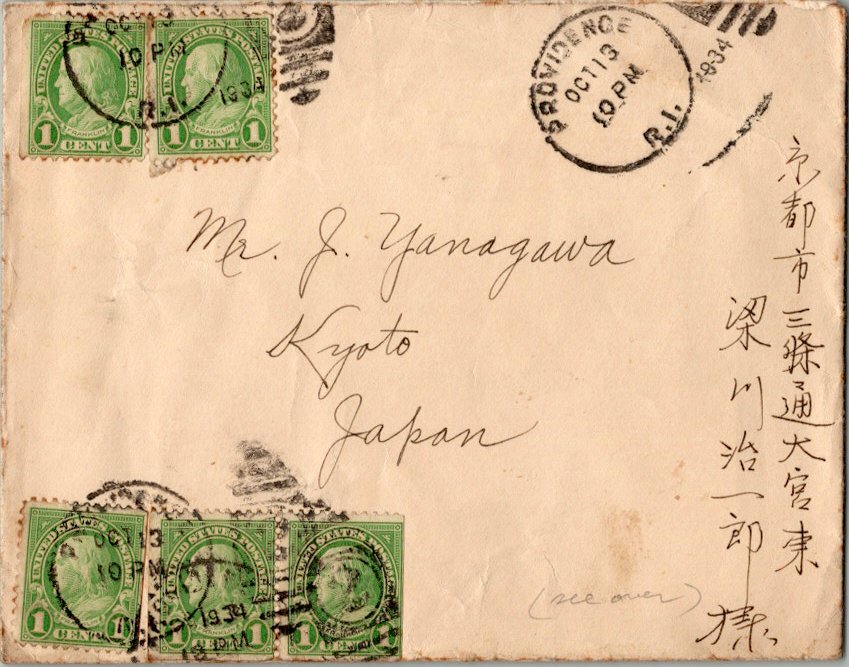 OCT 13
10 PM
R.I.
1934
UNITED STATES POSTAGE
FRANKLIN
1 CENT 1
UNITED STATES POSTAGE
FRANKLIN
1 CENT 1
PROVIDENCE
OCT 13
10 PM
R.I.
1934
Mr. J. Yanagawa
Kyoto
Japan
京都市三條通大宮東
梁川治一郎様
OCT 13
10 PM
1934
PM
UNITED STATES POSTAGE
1 CENT
UNITED STATES POSTAGE
FRANKLIN
1 CENT 1
UNITED STATES POSTAGE
1
(see over)